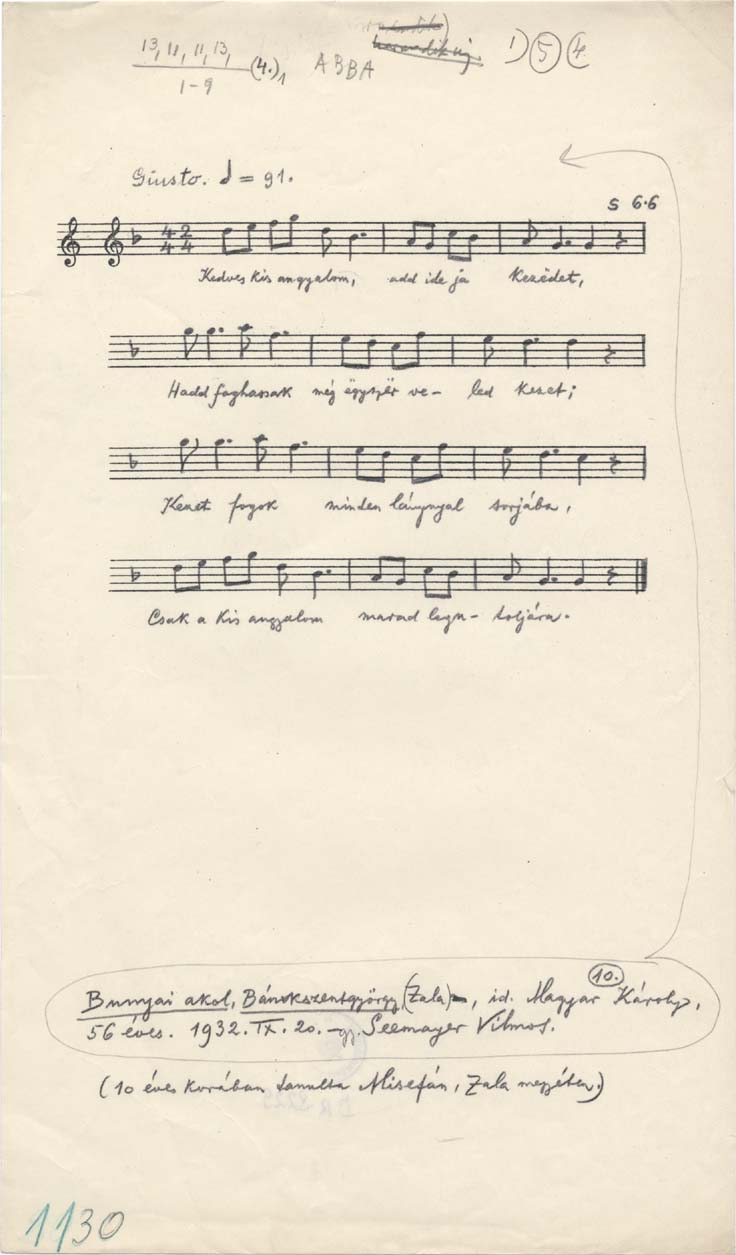 13, 11, 11, 13,
1-9
(4.)1
ABBA
1) 5 (4.
Giusto. = 91.
S 6.6
4 2
4 4
Kedves kis angyalom, add ide ja kezedet,
Hadd foghassak még ëgyszër ve- led kezet;
Kezet fogok minden lánynyal sorjába,
Csak a kis angyalom marad legu- toljára.
10.
Bunyai akol, Bánokszentgyörgy (Zala), id. Magyar Károly,
56 éves. 1932. IX. 20. –gy. Seemayer Vilmos.
(10 éves korában tanulta Misefán, Zala megyében.)
1130